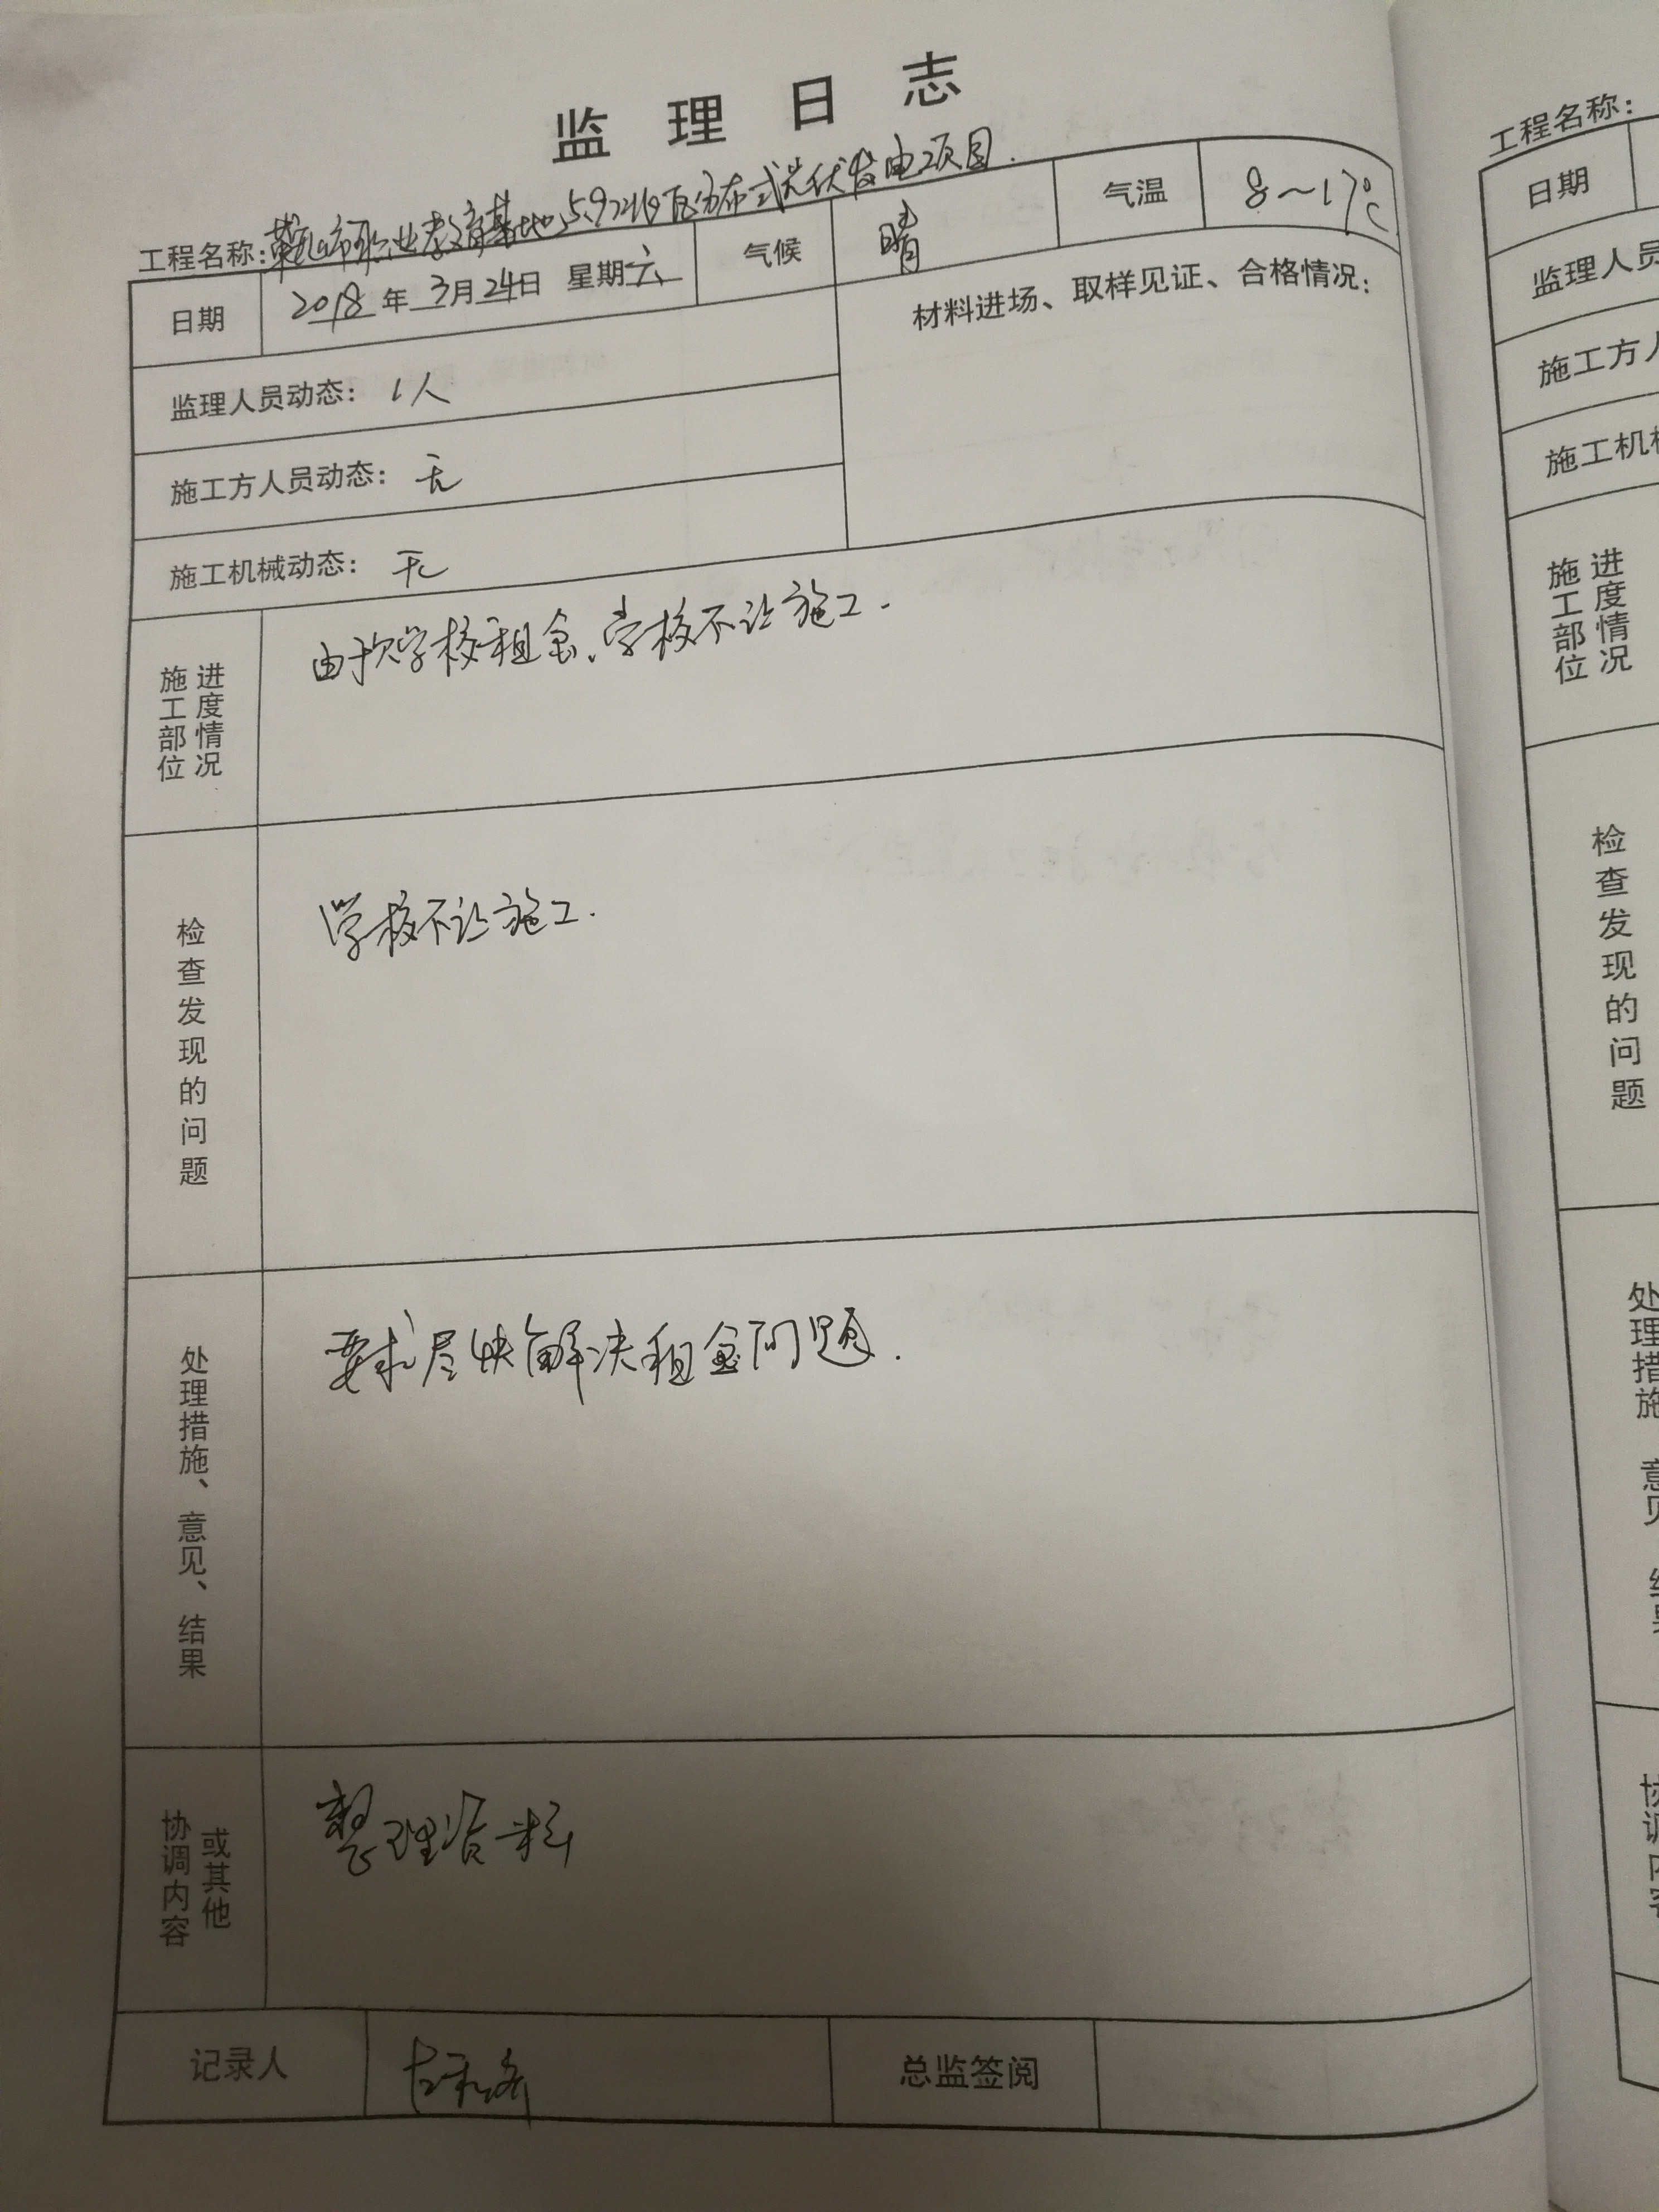 监理日志
工程名称:市职业教育基地5.972兆瓦分布式光伏发电项目.
日期 2018年3月24日 星期六 气候 晴 气温 8～17℃
监理人员动态: 1人 材料进场、取样见证、合格情况:
施工方人员动态: 无
施工机械动态: 无
施工部位 进度情况 由于欠学校租金、学校不让施工.
检查发现的问题 学校不让施工.
处理措施、意见、结果 要求尽快解决租金问题.
协调内容 或其他 整理资料
记录人 总监签阅
工程名称:
日期
监理人员
施工方人
施工机
施工部位 进度情况
检查发现的问题
处理措施